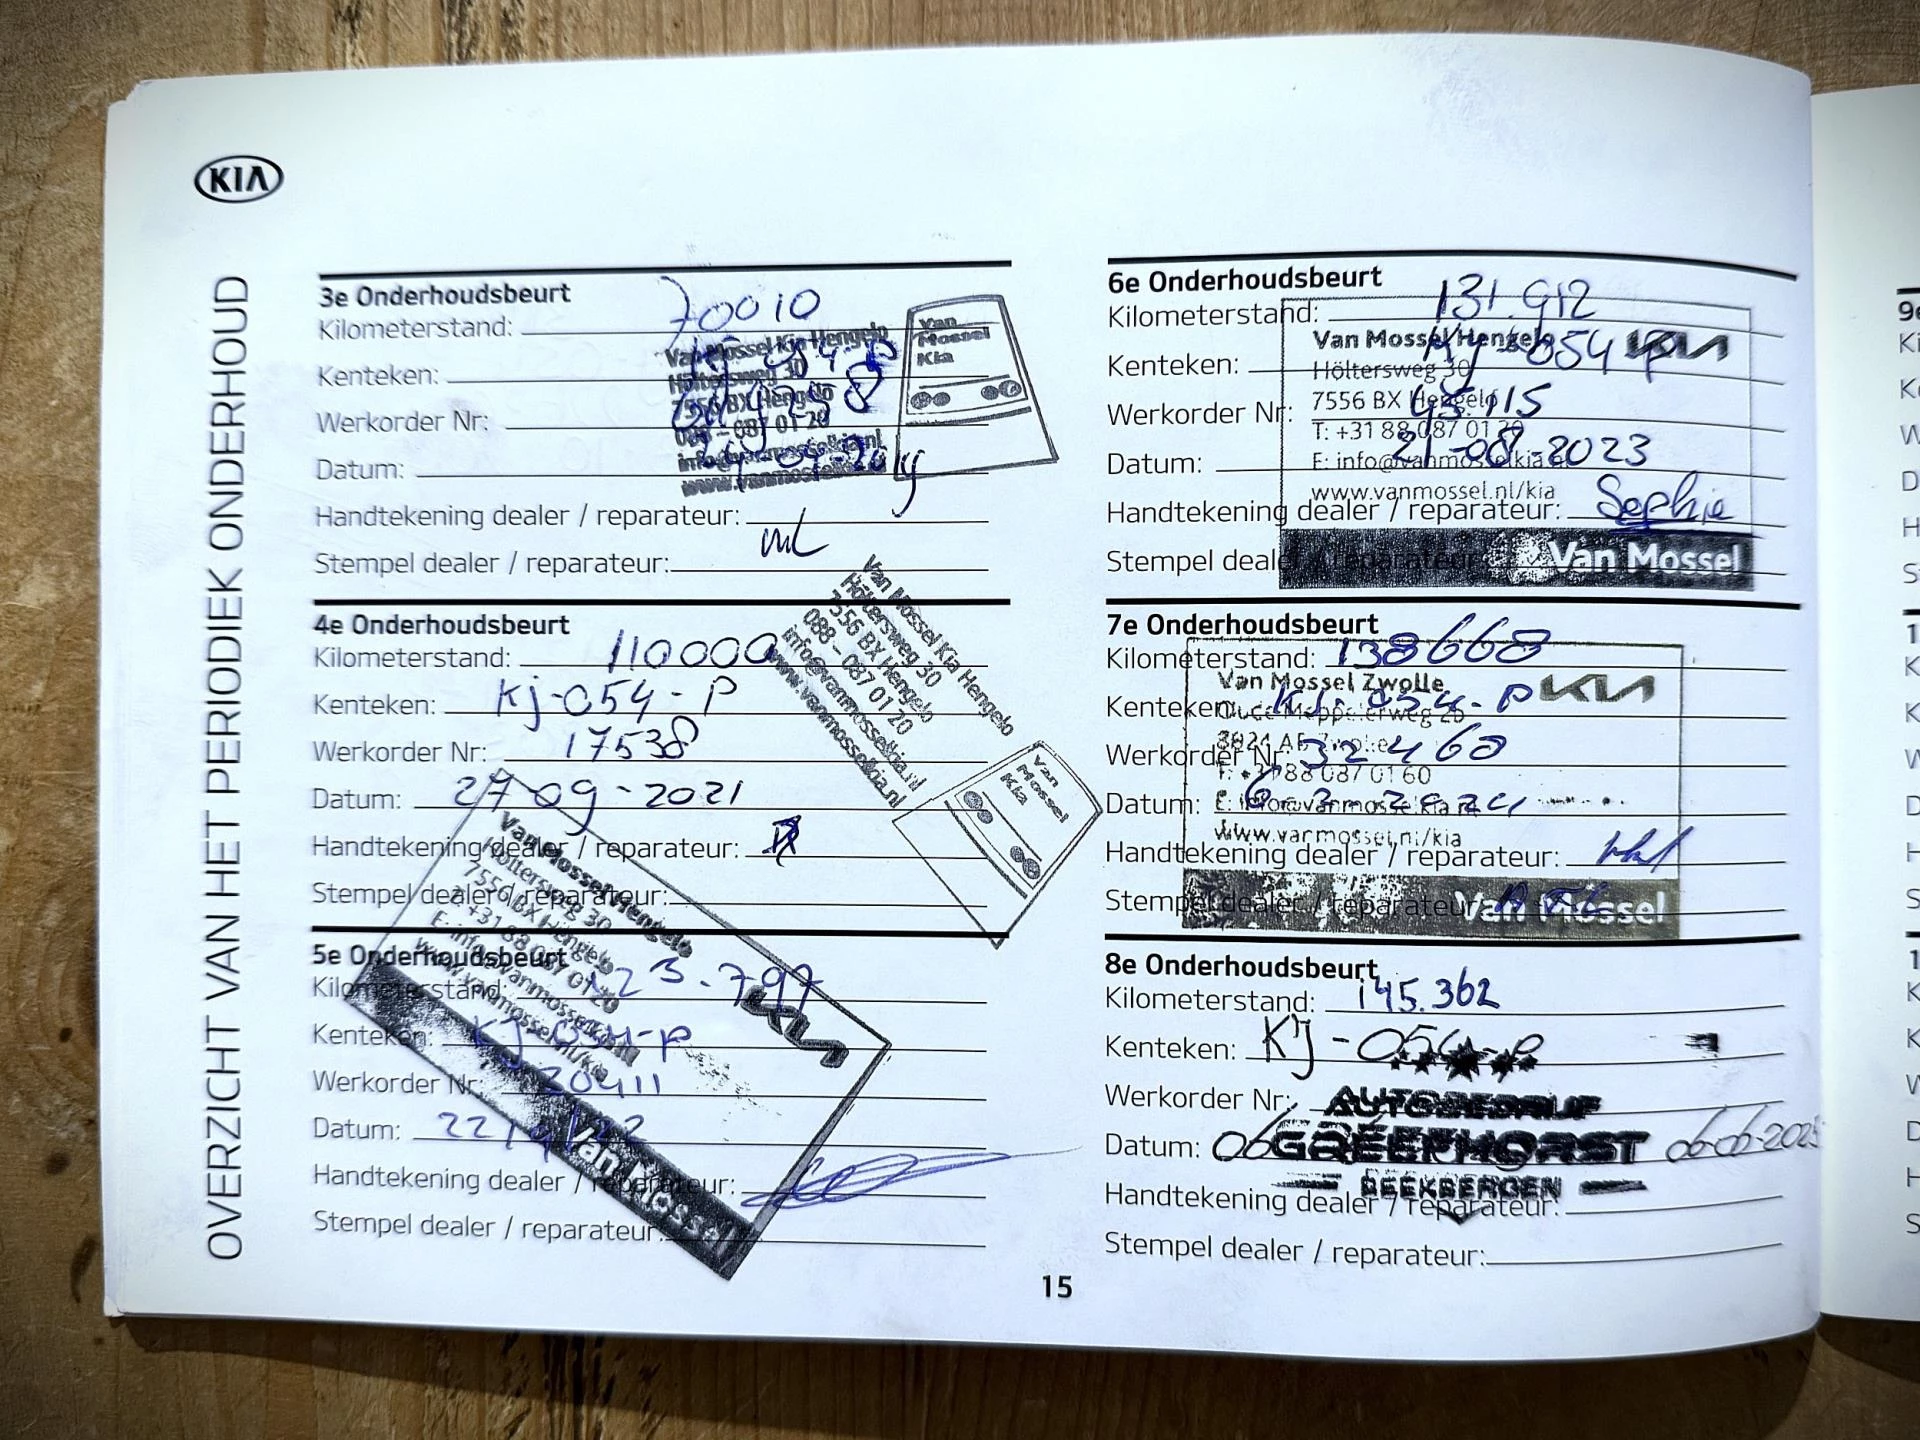 KIA
OVERZICHT VAN HET PERIODIEK ONDERHOUD
3e Onderhoudsbeurt
Kilometerstand: 70010
Kenteken:
Werkorder Nr:
Datum:
Handtekening dealer / reparateur:
Stempel dealer / reparateur:
Van Mossel Kia Hengelo
Höltersweg 30
7556 BX Hengelo
088 - 087 01 20
info@vanmosselkia.nl
www.vanmosselkia.nl
Van
Mossel
Kia
4e Onderhoudsbeurt
Kilometerstand: 110000
Kenteken: KJ-054-P
Werkorder Nr: 17538
Datum: 27 09-2021
Handtekening dealer / reparateur:
Stempel dealer / reparateur:
Van Mossel Kia Hengelo
Höltersweg 30
7556 BX Hengelo
088 - 087 01 20
info@vanmosselkia.nl
www.vanmosselkia.nl
Van
Mossel
Kia
5e Onderhoudsbeurt
Kilometerstand: 123.797
Kenteken: KJ-054-P
Werkorder Nr: 20411
Datum: 22/9/22
Handtekening dealer / reparateur:
Stempel dealer / reparateur:
Van Mossel Hengelo
Höltersweg 30
7556 BX Hengelo
+31 88 087 01 20
E: info@vanmosselkia.nl
www.vanmossel.nl/kia
KIA
Van Mossel
6e Onderhoudsbeurt
Kilometerstand: 131.912
Kenteken: KJ-054 P
Werkorder Nr: 45115
Datum: 21-08-2023
Handtekening dealer / reparateur: Sophie
Stempel dealer / reparateur:
Van Mossel Hengelo
KIA
Höltersweg 30
7556 BX Hengelo
T: +31 88 087 01 20
E: info@vanmosselkia.nl
www.vanmossel.nl/kia
Van Mossel
7e Onderhoudsbeurt
Kilometerstand: 138668
Kenteken: KJ-054-P
Werkorder Nr: 32460
Datum: 6-3-2024
Handtekening dealer / reparateur:
Stempel dealer / reparateur:
Van Mossel Zwolle
KIA
T: +31 88 087 01 60
E: info@vanmosselkia.nl
www.vanmossel.nl/kia
Van Mossel
8e Onderhoudsbeurt
Kilometerstand: 145.362
Kenteken: KJ-054-P
Werkorder Nr:
Datum: 06 06-06-2025
Handtekening dealer / reparateur:
Stempel dealer / reparateur:
AUTOBEDRIJF
GREEFHORST
BEEKBERGEN
15